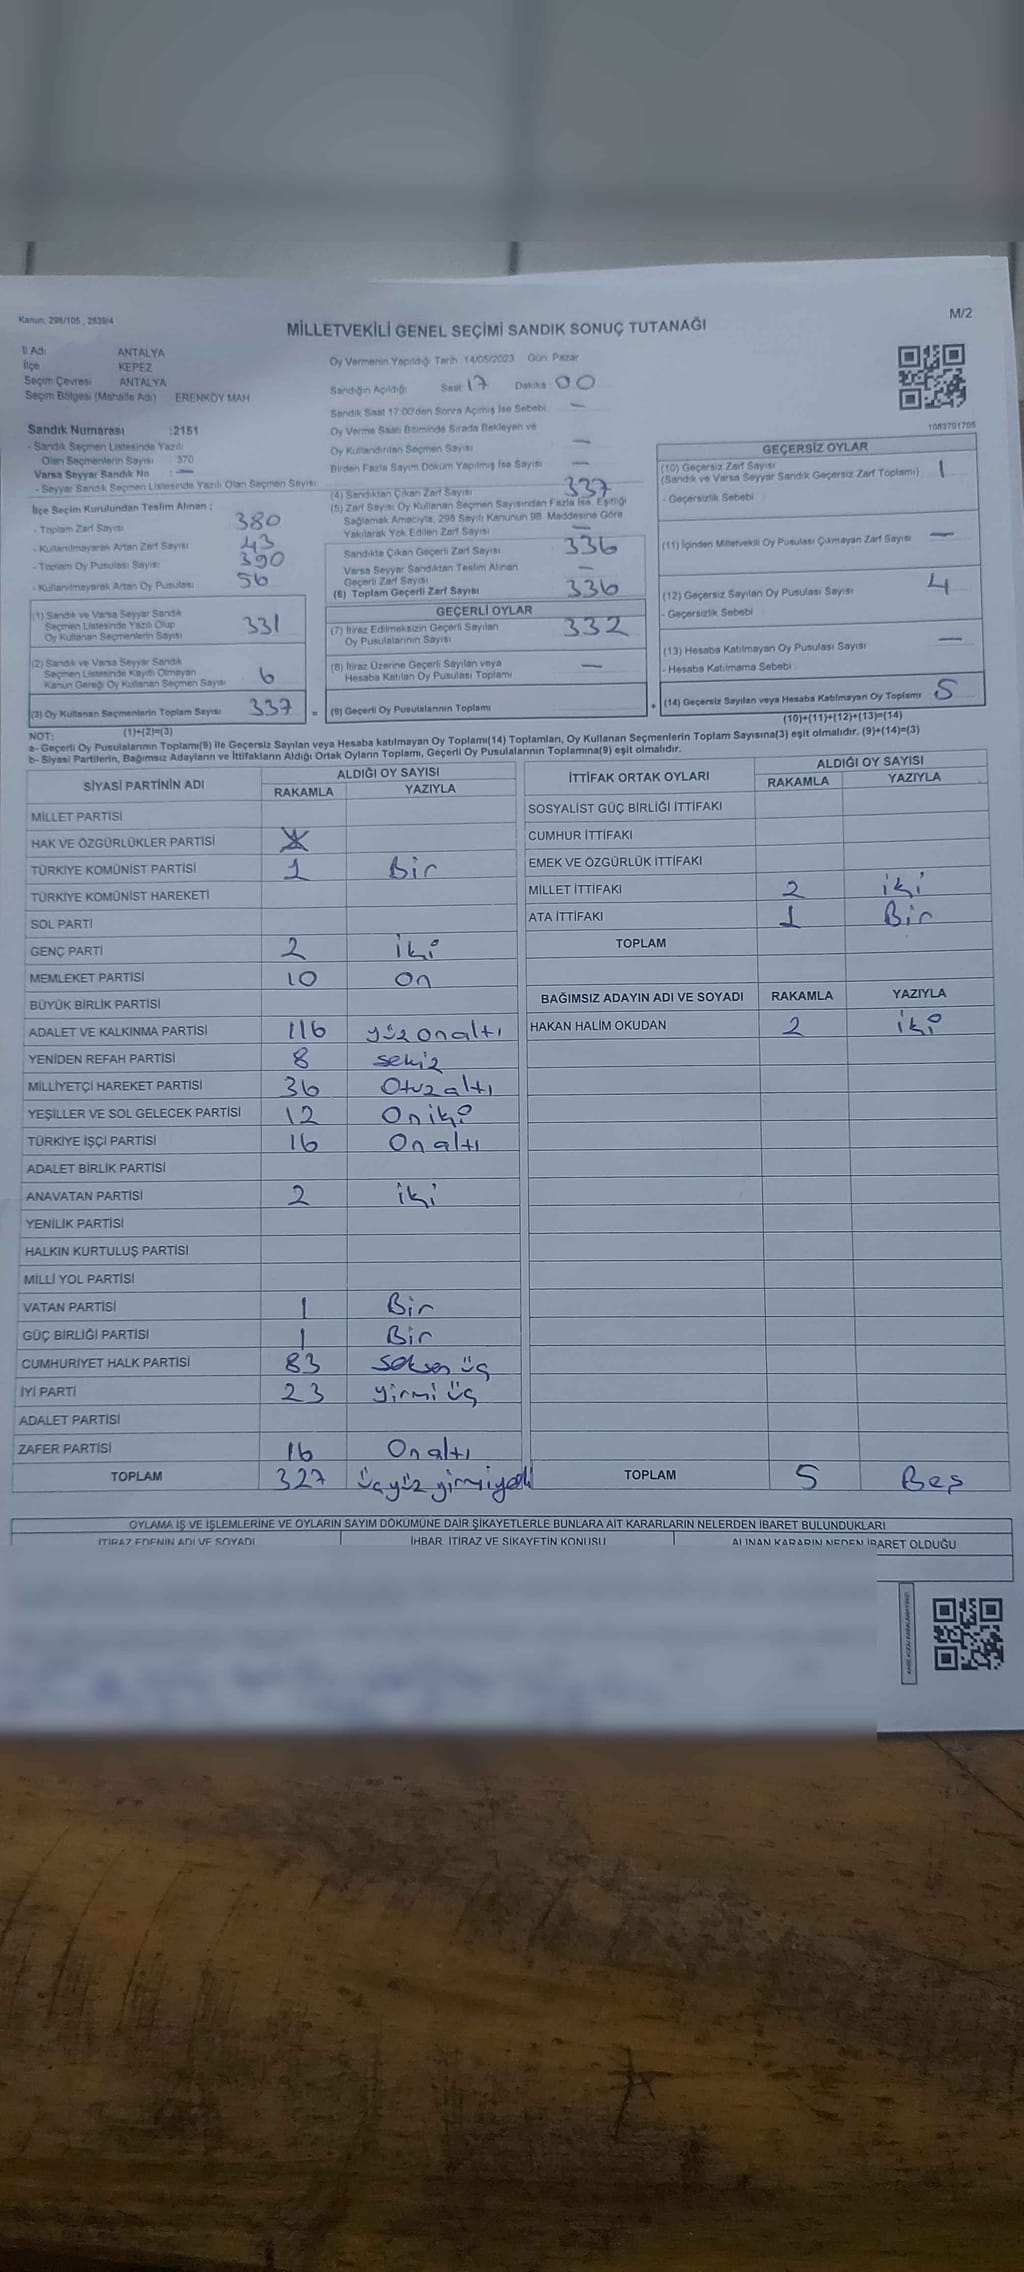 Kanun, 298/105 , 2839/4
M/2
MİLLETVEKİLİ GENEL SEÇİMİ SANDIK SONUÇ TUTANAĞI
İl Adı ANTALYA
İlçe KEPEZ
Seçim Çevresi ANTALYA
Seçim Bölgesi (Mahalle Adı) ERENKÖY MAH
Sandık Numarası :2151
- Sandık Seçmen Listesinde Yazılı
Olan Seçmenlerin Sayısı 370
Varsa Seyyar Sandık No : —
- Seyyar Sandık Seçmen Listesinde Yazılı Olan Seçmen Sayısı
İlçe Seçim Kurulundan Teslim Alınan ;
- Toplam Zarf Sayısı 380
- Kullanılmayarak Artan Zarf Sayısı 43
- Toplam Oy Pusulası Sayısı 390
- Kullanılmayarak Artan Oy Pusulası 56
(1) Sandık ve Varsa Seyyar Sandık
Seçmen Listesinde Yazılı Olup
Oy Kullanan Seçmenlerin Sayısı 331
(2) Sandık ve Varsa Seyyar Sandık
Seçmen Listesinde Kayıtlı Olmayan
Kanun Gereği Oy Kullanan Seçmen Sayısı 6
(3) Oy Kullanan Seçmenlerin Toplam Sayısı 337 =
(1)+(2)=(3)
Oy Vermenin Yapıldığı Tarih 14/05/2023 Gün: Pazar
Sandığın Açıldığı Saat 17 Dakika 00
Sandık Saat 17:00'den Sonra Açımış İse Sebebi —
Oy Verme Saati Bitiminde Sırada Bekleyen ve
Oy Kullandırılan Seçmen Sayısı —
Birden Fazla Sayım Döküm Yapılmış İse Sayısı —
(4) Sandıktan Çıkan Zarf Sayısı 337
(5) Zarf Sayısı Oy Kullanan Seçmen Sayısından Fazla İse, Eşitliği
Sağlamak Amacıyla, 298 Sayılı Kanunun 98. Maddesine Göre
Yakılarak Yok Edilen Zarf Sayısı —
Sandıkta Çıkan Geçerli Zarf Sayısı 336
Varsa Seyyar Sandıktan Teslim Alınan
Geçerli Zarf Sayısı —
(6) Toplam Geçerli Zarf Sayısı 336
GEÇERLİ OYLAR
(7) İtiraz Edilmeksizin Geçerli Sayılan
Oy Pusulalarının Sayısı 332
(8) İtiraz Üzerine Geçerli Sayılan veya
Hesaba Katılan Oy Pusulası Toplamı —
(9) Geçerli Oy Pusulalarının Toplamı +
1083701705
GEÇERSİZ OYLAR
(10) Geçersiz Zarf Sayısı
(Sandık ve Varsa Seyyar Sandık Geçersiz Zarf Toplamı) 1
- Geçersizlik Sebebi :
(11) İçinden Milletvekili Oy Pusulası Çıkmayan Zarf Sayısı —
(12) Geçersiz Sayılan Oy Pusulası Sayısı 4
- Geçersizlik Sebebi :
(13) Hesaba Katılmayan Oy Pusulası Sayısı —
- Hesaba Katılmama Sebebi :
(14) Geçersiz Sayılan veya Hesaba Katılmayan Oy Toplamı 5
(10)+(11)+(12)+(13)=(14)
NOT:
a- Geçerli Oy Pusulalarının Toplamı(9) ile Geçersiz Sayılan veya Hesaba katılmayan Oy Toplamı(14) Toplamları, Oy Kullanan Seçmenlerin Toplam Sayısına(3) eşit olmalıdır. (9)+(14)=(3)
b- Siyasi Partilerin, Bağımsız Adayların ve İttifakların Aldığı Ortak Oyların Toplamı, Geçerli Oy Pusulalarının Toplamına(9) eşit olmalıdır.
SİYASİ PARTİNİN ADI ALDIĞI OY SAYISI
RAKAMLA YAZIYLA
MİLLET PARTİSİ
HAK VE ÖZGÜRLÜKLER PARTİSİ
TÜRKİYE KOMÜNİST PARTİSİ 1 Bir
TÜRKİYE KOMÜNİST HAREKETİ
SOL PARTİ
GENÇ PARTİ 2 iki
MEMLEKET PARTİSİ 10 On
BÜYÜK BİRLİK PARTİSİ
ADALET VE KALKINMA PARTİSİ 116 yüz onaltı
YENİDEN REFAH PARTİSİ 8 sekiz
MİLLİYETÇİ HAREKET PARTİSİ 36 Otuzaltı
YEŞİLLER VE SOL GELECEK PARTİSİ 12 Oniki
TÜRKİYE İŞÇİ PARTİSİ 16 Onaltı
ADALET BİRLİK PARTİSİ
ANAVATAN PARTİSİ 2 iki
YENİLİK PARTİSİ
HALKIN KURTULUŞ PARTİSİ
MİLLİ YOL PARTİSİ
VATAN PARTİSİ 1 Bir
GÜÇ BİRLİĞİ PARTİSİ 1 Bir
CUMHURİYET HALK PARTİSİ 83 seksen üç
İYİ PARTİ 23 yirmi üç
ADALET PARTİSİ
ZAFER PARTİSİ 16 Onaltı
TOPLAM 327 üçyüz yirmiyedi
İTTİFAK ORTAK OYLARI ALDIĞI OY SAYISI
RAKAMLA YAZIYLA
SOSYALİST GÜÇ BİRLİĞİ İTTİFAKI
CUMHUR İTTİFAKI
EMEK VE ÖZGÜRLÜK İTTİFAKI
MİLLET İTTİFAKI 2 iki
ATA İTTİFAKI 1 Bir
TOPLAM
BAĞIMSIZ ADAYIN ADI VE SOYADI RAKAMLA YAZIYLA
HAKAN HALİM OKUDAN 2 iki
TOPLAM 5 Beş
OYLAMA İŞ VE İŞLEMLERİNE VE OYLARIN SAYIM DÖKÜMÜNE DAİR ŞİKAYETLERLE BUNLARA AİT KARARLARIN NELERDEN İBARET BULUNDUKLARI
İTİRAZ EDENİN ADI VE SOYADI İHBAR, İTİRAZ VE ŞİKAYETİN KONUSU ALINAN KARARIN NEDEN İBARET OLDUĞU